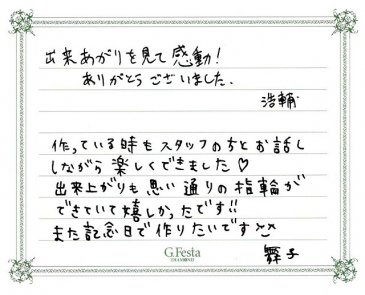 出来あがりを見て感動!
ありがとうございました.
浩輔
作っている時もスタッフの方とお話し
しながら楽しくできました♡
出来上がりも思い通りの指輪が
できていて嬉しかったです!!
また記念日で作りたいです^^
舞子
G.Festa
DIAMOND